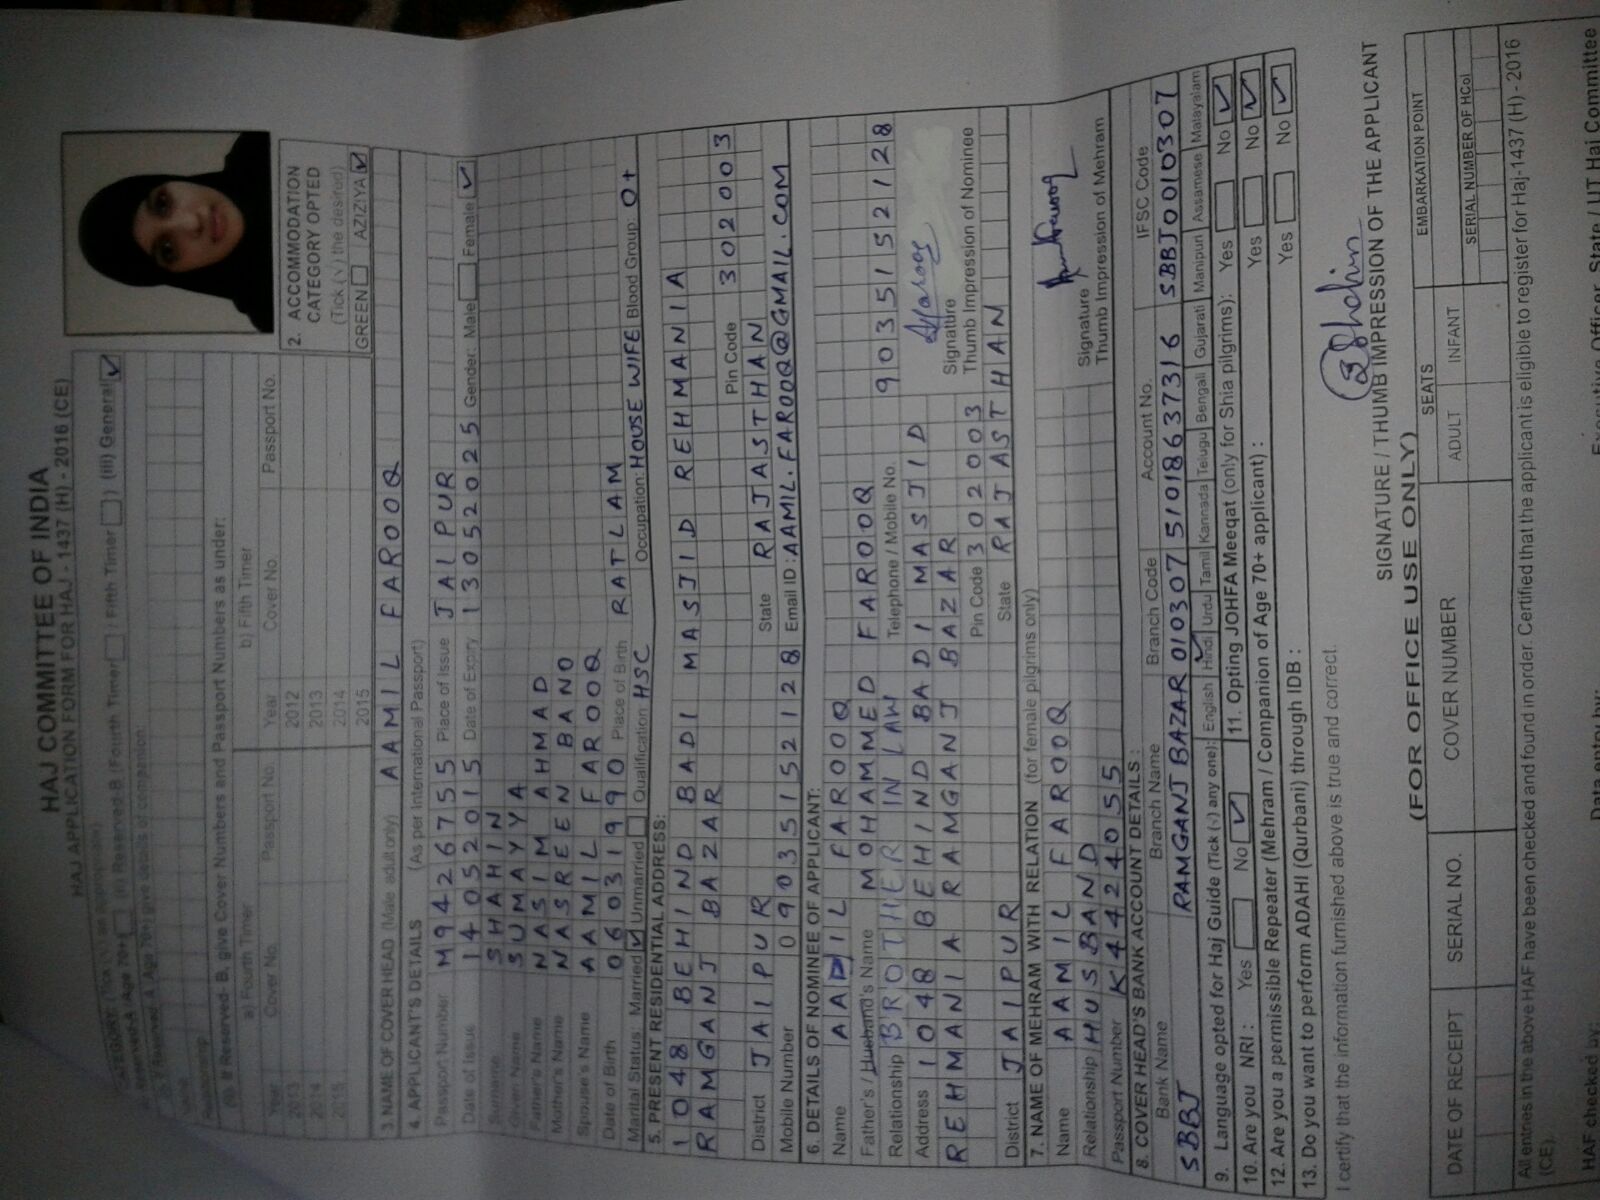 HAJ COMMITTEE OF INDIA
HAJ APPLICATION FORM FOR HAJ - 1437 (H) - 2016 (CE)
(ii) Reserved-B (Fourth Timer / Fifth Timer ) (III) General
If Reserved- B, give Cover Numbers and Passport Numbers as under:
a) Fourth Timer b) Fifth Timer
Year Cover No. Passport No. Year Cover No. Passport No.
2013 2012
2014 2013
2015 2014
2015
2. ACCOMMODATION CATEGORY OPTED
(Tick (√) the desired)
GREEN AZIZIYA
3. NAME OF COVER HEAD (Male adult only) AAMIL FAROOQ
4. APPLICANT'S DETAILS (As per International Passport)
Passport Number M9426755 Place of Issue JAIPUR
Date of Issue 14052015 Date of Expiry 13052025 Gender: Male Female
Surname SHAHIN
Given Name SUMAYYA
Father's Name NASIM AHMAD
Mother's Name NASREEN BANO
Spouse's Name AAMIL FAROOQ
Date of Birth 06031990 Place of Birth RATLAM
Marital Status: Married Unmarried Qualification HSC Occupation: HOUSE WIFE Blood Group: O+
5. PRESENT RESIDENTIAL ADDRESS:
1048 BEHIND BADI MASJID REHMANIA
RAMGANJ BAZAR Pin Code 302003
District JAIPUR State RAJASTHAN
Mobile Number 09035152128 Email ID: AAMIL.FAROOQ@GMAIL.COM
6. DETAILS OF NOMINEE OF APPLICANT:
Name AADIL FAROOQ
Father's / Husband's Name MOHAMMED FAROOQ
Relationship BROTHER IN LAW Telephone / Mobile No. 9035152128
Address 1048 BEHIND BADI MASJID
REHMANIA RAMGANJ BAZAR
Pin Code 302003
Signature
Thumb Impression of Nominee
District JAIPUR State RAJASTHAN
7. NAME OF MEHRAM WITH RELATION (for female pilgrims only)
Name AAMIL FAROOQ
Relationship HUSBAND
Passport Number K4424055
Signature
Thumb Impression of Mehram
8. COVER HEAD'S BANK ACCOUNT DETAILS :
Bank Name Branch Name Branch Code Account No. IFSC Code
SBBJ RAMGANJ BAZAR 010307 51018637316 SBBJ0010307
9. Language opted for Haj Guide (Tick (√) any one): English Hindi Urdu Tamil Kannada Telugu Bengali Gujarati Manipuri Assamese Malayalam
10. Are you NRI : Yes No 11. Opting JOHFA Meeqat (only for Shia pilgrims): Yes No
12. Are you a permissible Repeater (Mehram / Companion of Age 70+ applicant) : Yes No
13. Do you want to perform ADAHI (Qurbani) through IDB : Yes No
I certify that the information furnished above is true and correct.
Shahin
SIGNATURE / THUMB IMPRESSION OF THE APPLICANT
(FOR OFFICE USE ONLY)
DATE OF RECEIPT SERIAL NO. COVER NUMBER SEATS EMBARKATION POINT
ADULT INFANT SERIAL NUMBER OF HCoI
All entries in the above HAF have been checked and found in order. Certified that the applicant is eligible to register for Haj-1437 (H) - 2016 (CE).
HAF checked by: Data entry by: Executive Officer, State / UT Haj Committee